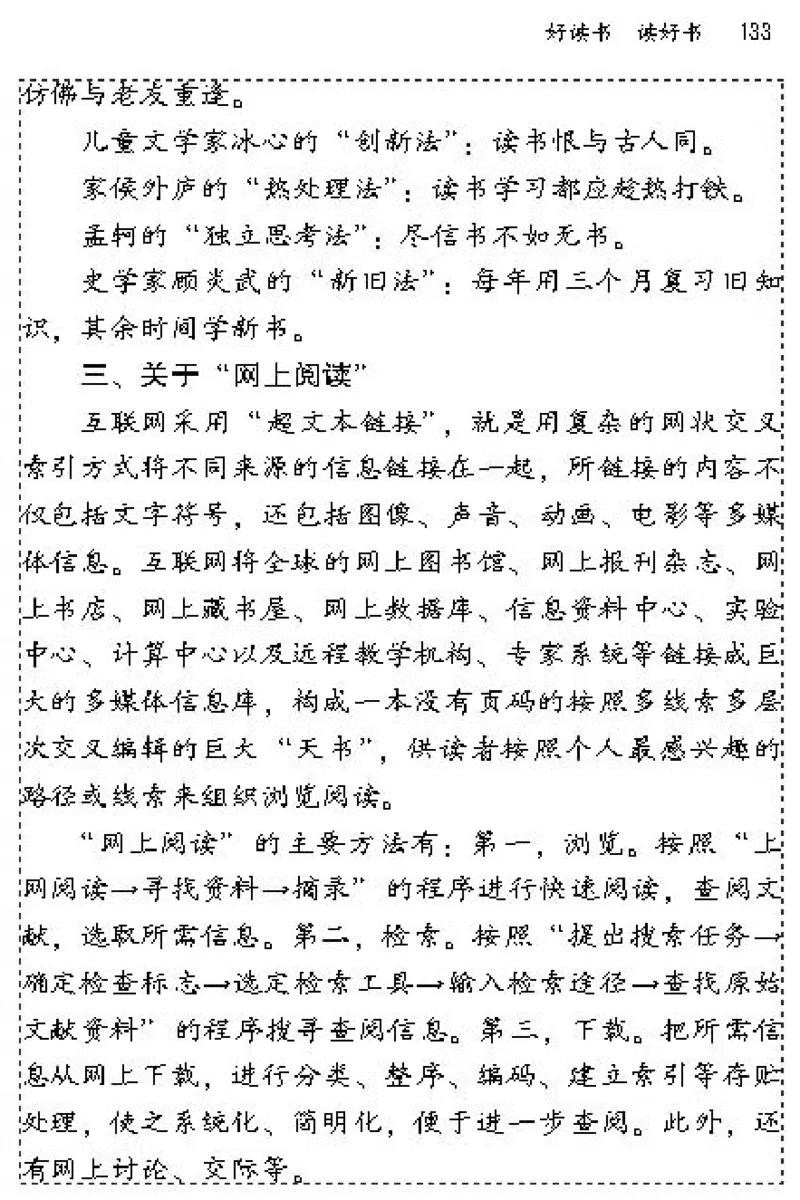 好读书 读好书 133
仿佛与老友重逢。
儿童文学家冰心的“创新法”：读书恨与古人同。
家侯外庐的“热处理法”：读书学习都应趁热打铁。
孟轲的“独立思考法”：尽信书不如无书。
史学家顾炎武的“新旧法”：每年用三个月复习旧知
识，其余时间学新书。
三、关于“网上阅读”
互联网采用“超文本链接”，就是用复杂的网状交叉
索引方式将不同来源的信息链接在一起，所链接的内容不
仅包括文字符号，还包括图像、声音、动画、电影等多媒
体信息。互联网将全球的网上图书馆、网上报刊杂志、网
上书店、网上藏书屋、网上数据库、信息资料中心、实验
中心、计算中心以及远程教学机构、专家系统等链接成巨
大的多媒体信息库，构成一本没有页码的按照多线索多层
次交叉编辑的巨大“天书”，供读者按照个人最感兴趣的
路径或线索来组织浏览阅读。
“网上阅读”的主要方法有：第一，浏览。按照“上
网阅读→寻找资料→摘录”的程序进行快速阅读，查阅文
献，选取所需信息。第二，检索。按照“提出搜索任务→
确定检查标志→选定检索工具→输入检索途径→查找原始
文献资料”的程序搜寻查阅信息。第三，下载。把所需信
息从网上下载，进行分类、整序、编码、建立索引等存贮
处理，使之系统化、简明化，便于进一步查阅。此外，还
有网上讨论、交际等。